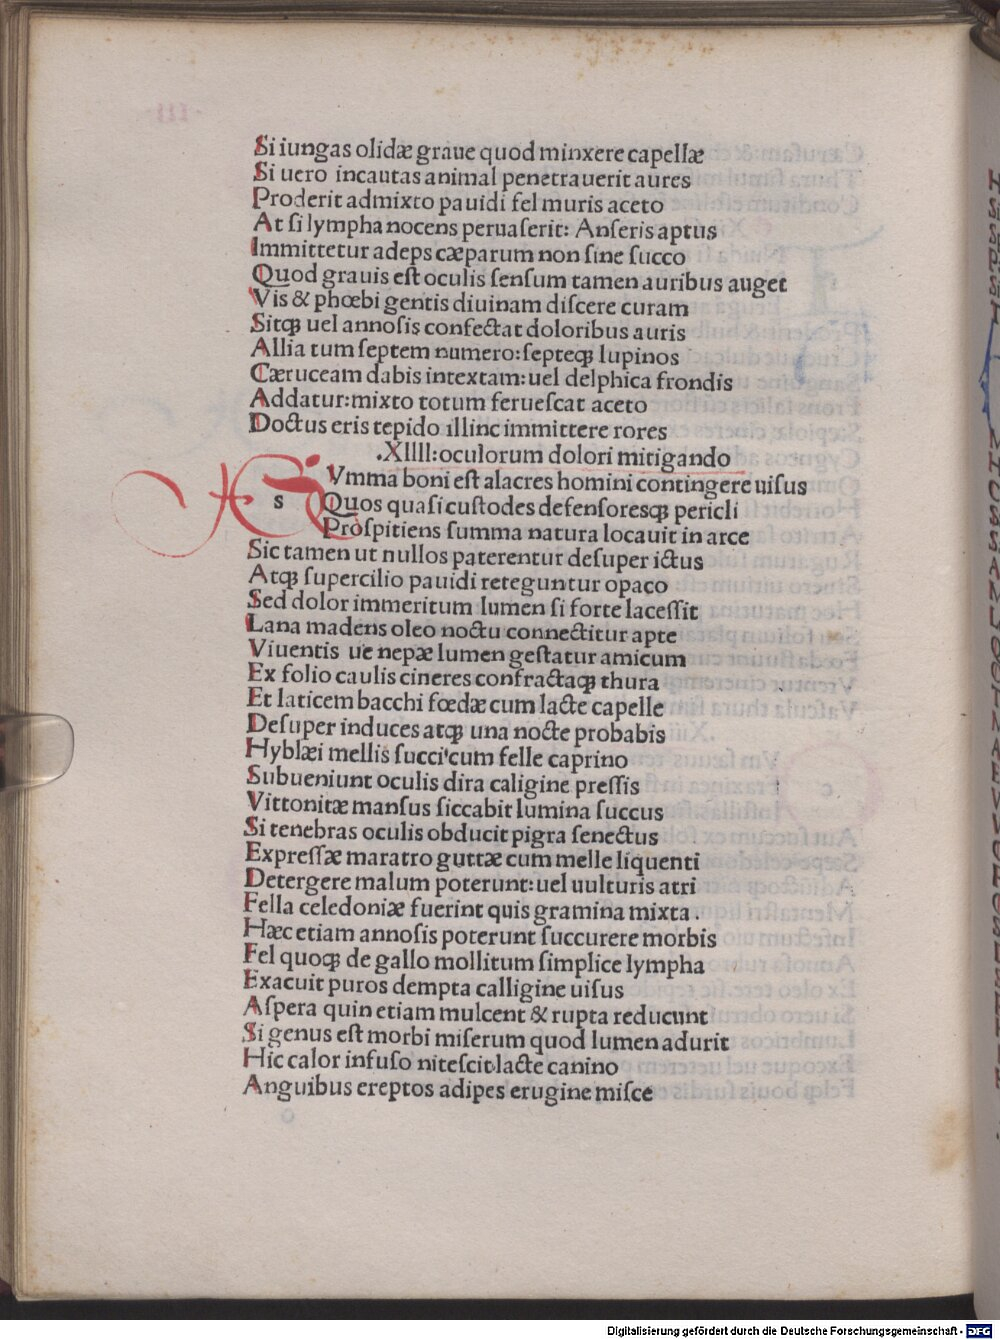 Si iungas olidæ graue quod minxere capellæ
Si uero incautas animal penetrauerit aures
Proderit admixto pauidi fel muris aceto
At si lympha nocens peruaserit: Anseris aptus
Immittetur adeps cæparum non sine succo
Quod grauis est oculis sensum tamen auribus auget
Vis & phœbi gentis diuinam discere curam
Sitqꝫ uel annosis confectat doloribus auris
Allia tum septem numero: septeqꝫ lupinos
Cæruceam dabis intextam: uel delphica frondis
Addatur: mixto totum feruescat aceto
Doctus eris tepido illinc immittere rores
.XIIII: oculorum dolori mitigando
s Vmma boni est alacres homini contingere uisus
Quos quasi custodes defensoresqꝫ pericli
Prospitiens summa natura locauit in arce
Sic tamen ut nullos paterentur desuper ictus
Atqꝫ supercilio pauidi reteguntur opaco
Sed dolor immeritum lumen si forte lacessit
Lana madens oleo noctu connectitur apte
Viuentis ue nepæ lumen gestatur amicum
Ex folio caulis cineres confractaqꝫ thura
Et laticem bacchi fœdæ cum lacte capelle
Desuper induces atqꝫ una nocte probabis
Hyblæi mellis succi'cum felle caprino
Subueniunt oculis dira caligine pressis
Vittonitæ mansus siccabit lumina succus
Si tenebras oculis obducit pigra senectus
Expressæ maratro guttæ cum melle liquenti
Detergere malum poterunt: uel uulturis atri
Fella celedoniæ fuerint quis gramina mixta .
Hæc etiam annosis poterunt succurere morbis
Fel quoqꝫ de gallo mollitum simplice lympha
Exacuit puros dempta calligine uisus
Aspera quin etiam mulcent & rupta reducunt
Si genus est morbi miserum quod lumen adurit
Hic calor infuso nitescit lacte canino
Anguibus ereptos adipes erugine misce
Digitalisierung gefördert durch die Deutsche Forschungsgemeinschaft - DFG